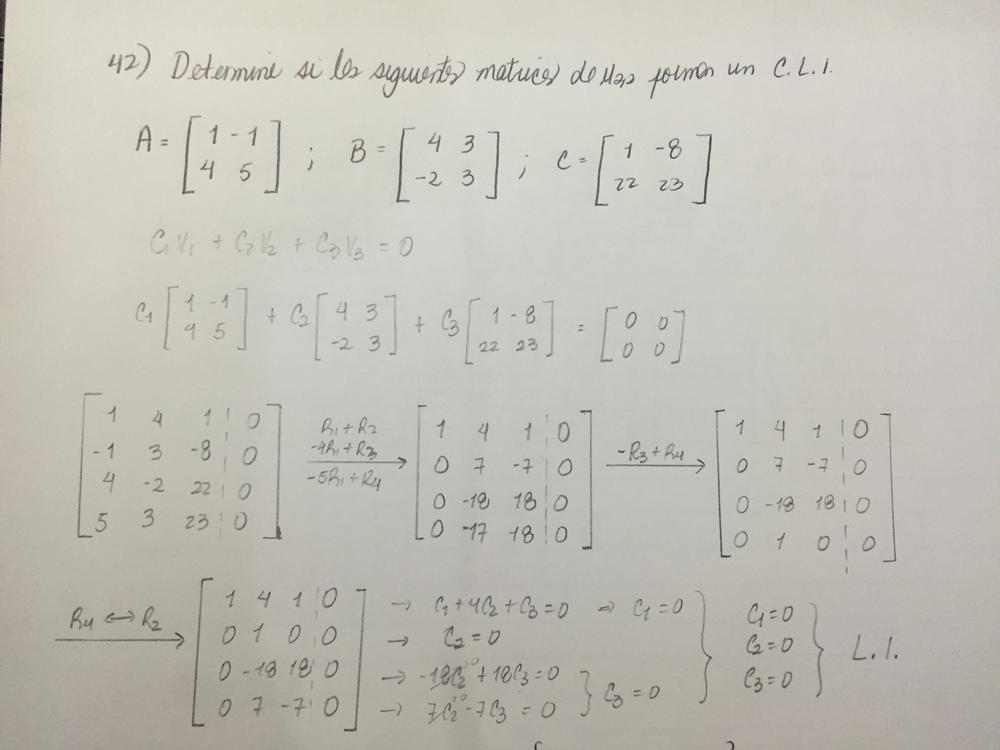 42) Determine si las siguientes matrices de M2,2 forman un C.L.I.
A = [1 -1; 4 5] ; B = [4 3; -2 3] ; C = [1 -8; 22 23]
C1V1 + C2V2 + C3V3 = 0
C1 [1 -1; 4 5] + C2 [4 3; -2 3] + C3 [1 -8; 22 23] = [0 0; 0 0]
[1 4 1 | 0; -1 3 -8 | 0; 4 -2 22 | 0; 5 3 23 | 0] R1+R2 -4R1+R3 -5R1+R4 → [1 4 1 | 0; 0 7 -7 | 0; 0 -18 18 | 0; 0 -17 18 | 0] -R3+R4 → [1 4 1 | 0; 0 7 -7 | 0; 0 -18 18 | 0; 0 1 0 | 0]
R4 ↔ R2 → [1 4 1 | 0; 0 1 0 | 0; 0 -18 18 | 0; 0 7 -7 | 0]
→ C1+4C2+C3=0 ⇒ C1=0
→ C2=0
→ -18C2 0 +18C3=0
→ 7C2 0 -7C3=0 } C3=0
} C1=0
C2=0
C3=0 } L.I.